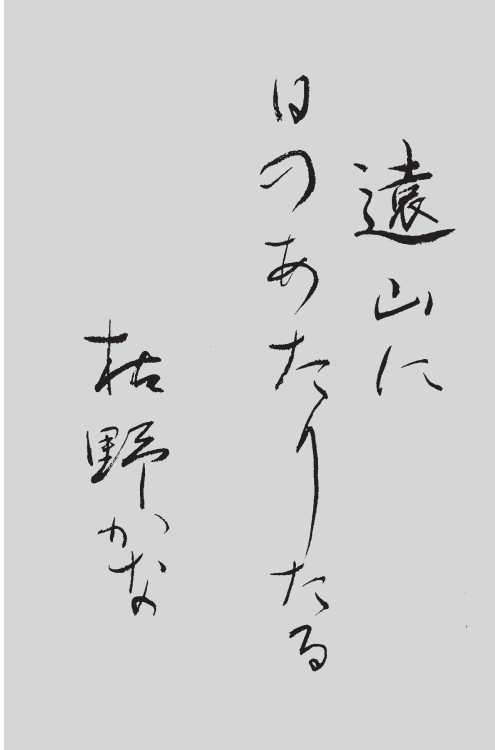 遠山に
日のあたりたる
枯野かな